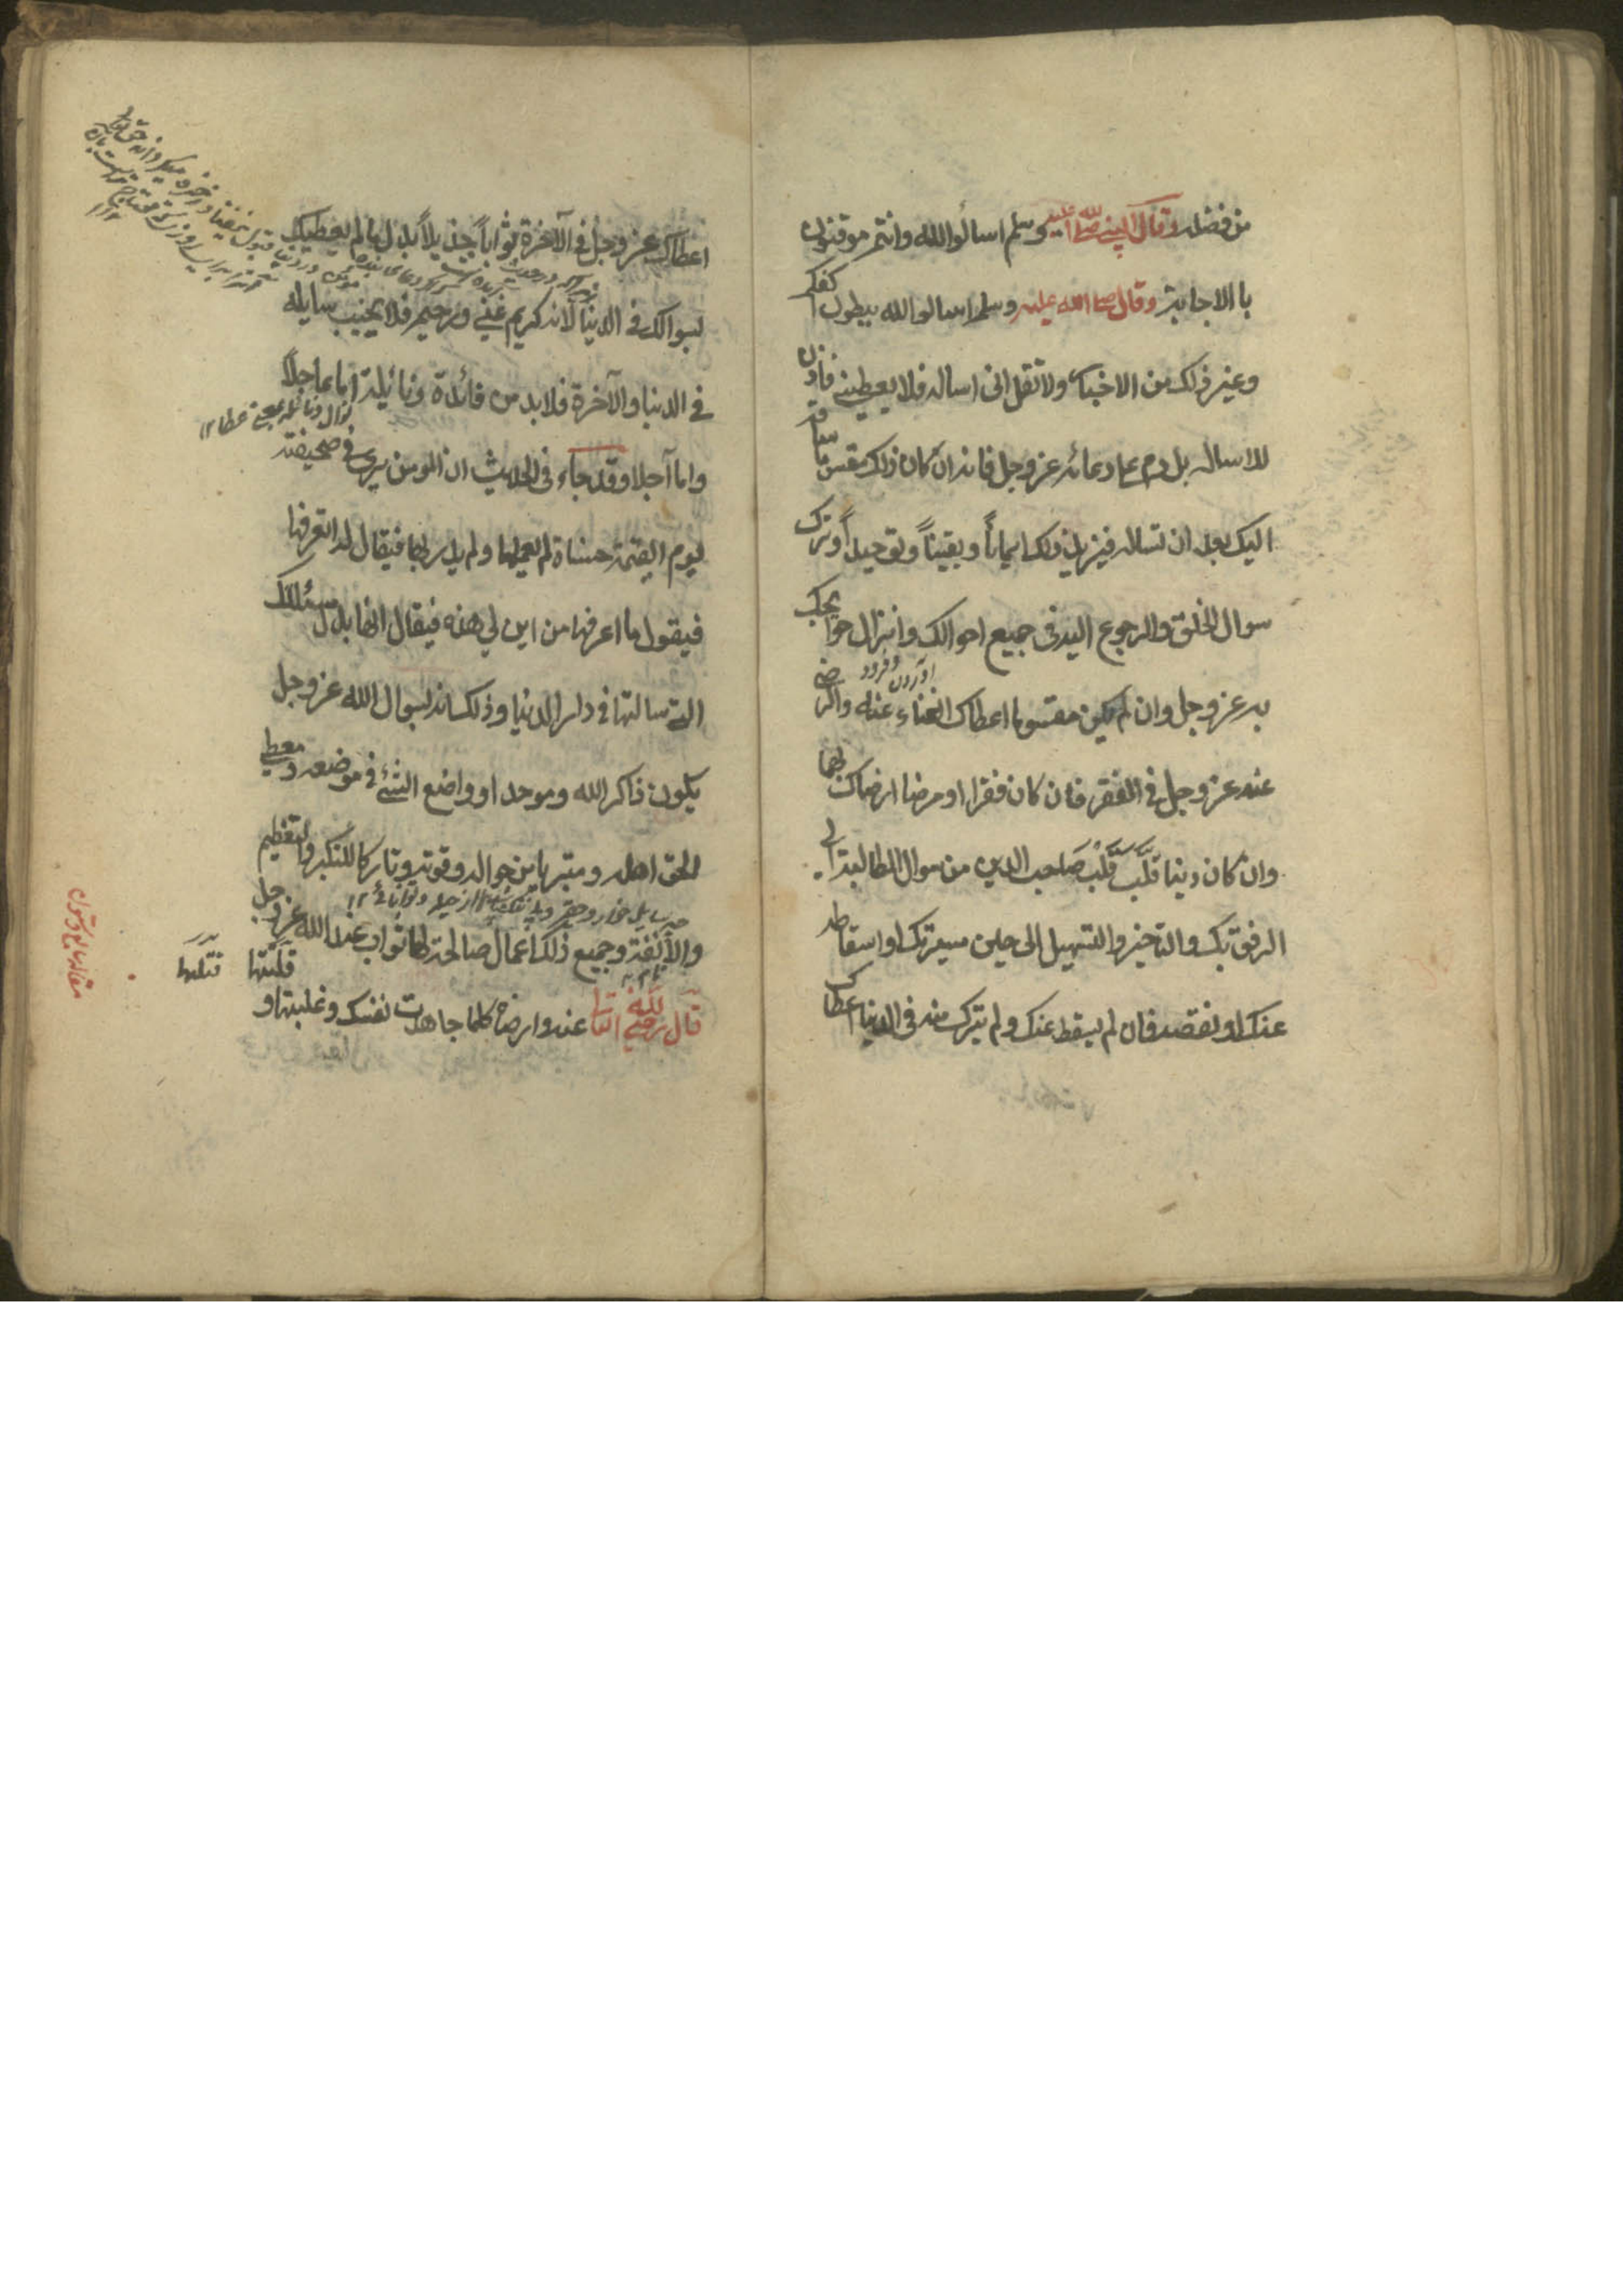 من فضله وقال النبي صلى الله عليه وسلم اسالوا الله وانتم موقنون
با الاجابة وقال صلى الله عليه وسلم اسالوا الله ببطون اكفكم
وغير ذلك من الاخبار ولا تقل انى اساله فلا يعطينى فاذن
لا اساله بل دم على دعائه عز وجل فانه ان كان ذلك مقسوما ساقه
اليك بعد ان تساله فيزيد ذلك ايمانأ ويقيناً وتوحيداً وترك
سوال الخلق والرجوع اليه فى جميع احوالك وانزال حوايجك
به عز وجل وان لم يكن مقسوما اعطاك الغناء عنه والرضى
عنه عز وجل فى الفقر فان كان فقرا او مرضا ارضاك بهما
وان كان دينا قلب قلب صاحب الدين من سوال المطالبة الى
الرفق بك والتاخير والتسهيل الى حين ميسرتك او اسقاطه
عنك او نقصه فان لم يسقط عنك ولم يترك منه فى الدنيا اعطاك
اعطاك عز وجل فى الآخرة ثواباً جزيلاً بدل مالم يعطيك
بسوالك فى الدنيا لانه كريم غني ورحيم فلا يخيب سايله
فى الدنيا والآخرة فلا بد من فائدة ونائيلة اما عاجلاً
واما آجلا وقد جاء فى الحديث ان المومن يرى فى صحيفته
يوم القيمة حسناة لم يعملها ولم يدر بها فيقال له اتعرفها
فيقول ما اعرفها من اين لي هذه فيقال انها بدل مسئلتك
التى سالتها فى دار الدنيا وذلك انه بسوال الله عز وجل
يكون ذاكر الله وموحدا وواضع الشئ فى موضعه ومعطي
الحق اهله ومتبريا من حواله وقوته وتاركا للتكبر والتعظيم
والأنفة وجميع ذلك اعمال صالحة لها ثواب عند الله عز وجل
قال رضي الله تعالى عنه وارضاه كلما جاهدت نفسك وغلبتها و
قتلتها